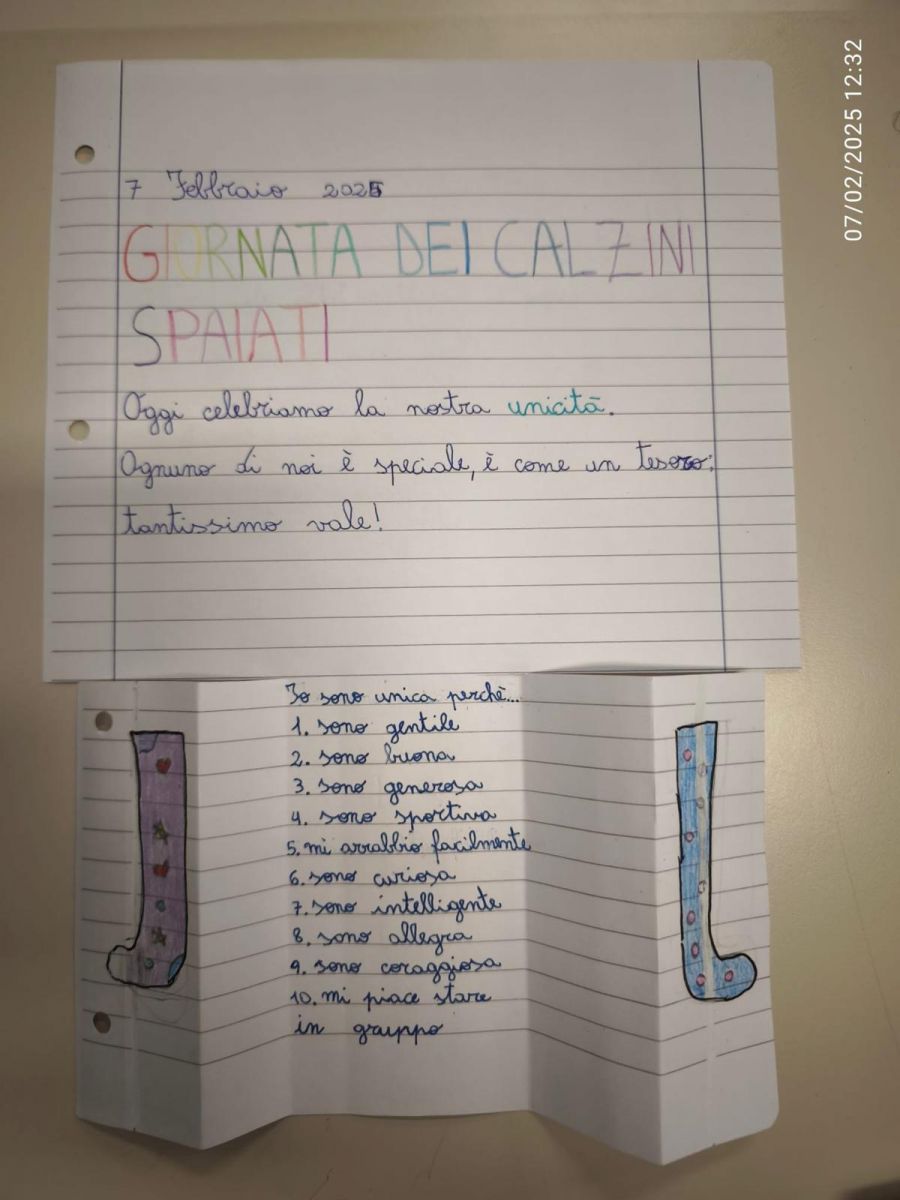 07/02/2025 12:32
7 Febbraio 2025
GIORNATA DEI CALZINI
SPAIATI
Oggi celebriamo la nostra unicità.
Ognuno di noi è speciale, è come un tesoro:
tantissimo vale!
Io sono unica perchè...
1. sono gentile
2. sono buona
3. sono generosa
4. sono sportiva
5. mi arrabbio facilmente
6. sono curiosa
7. sono intelligente
8. sono allegra
9. sono coraggiosa
10. mi piace stare
in gruppo